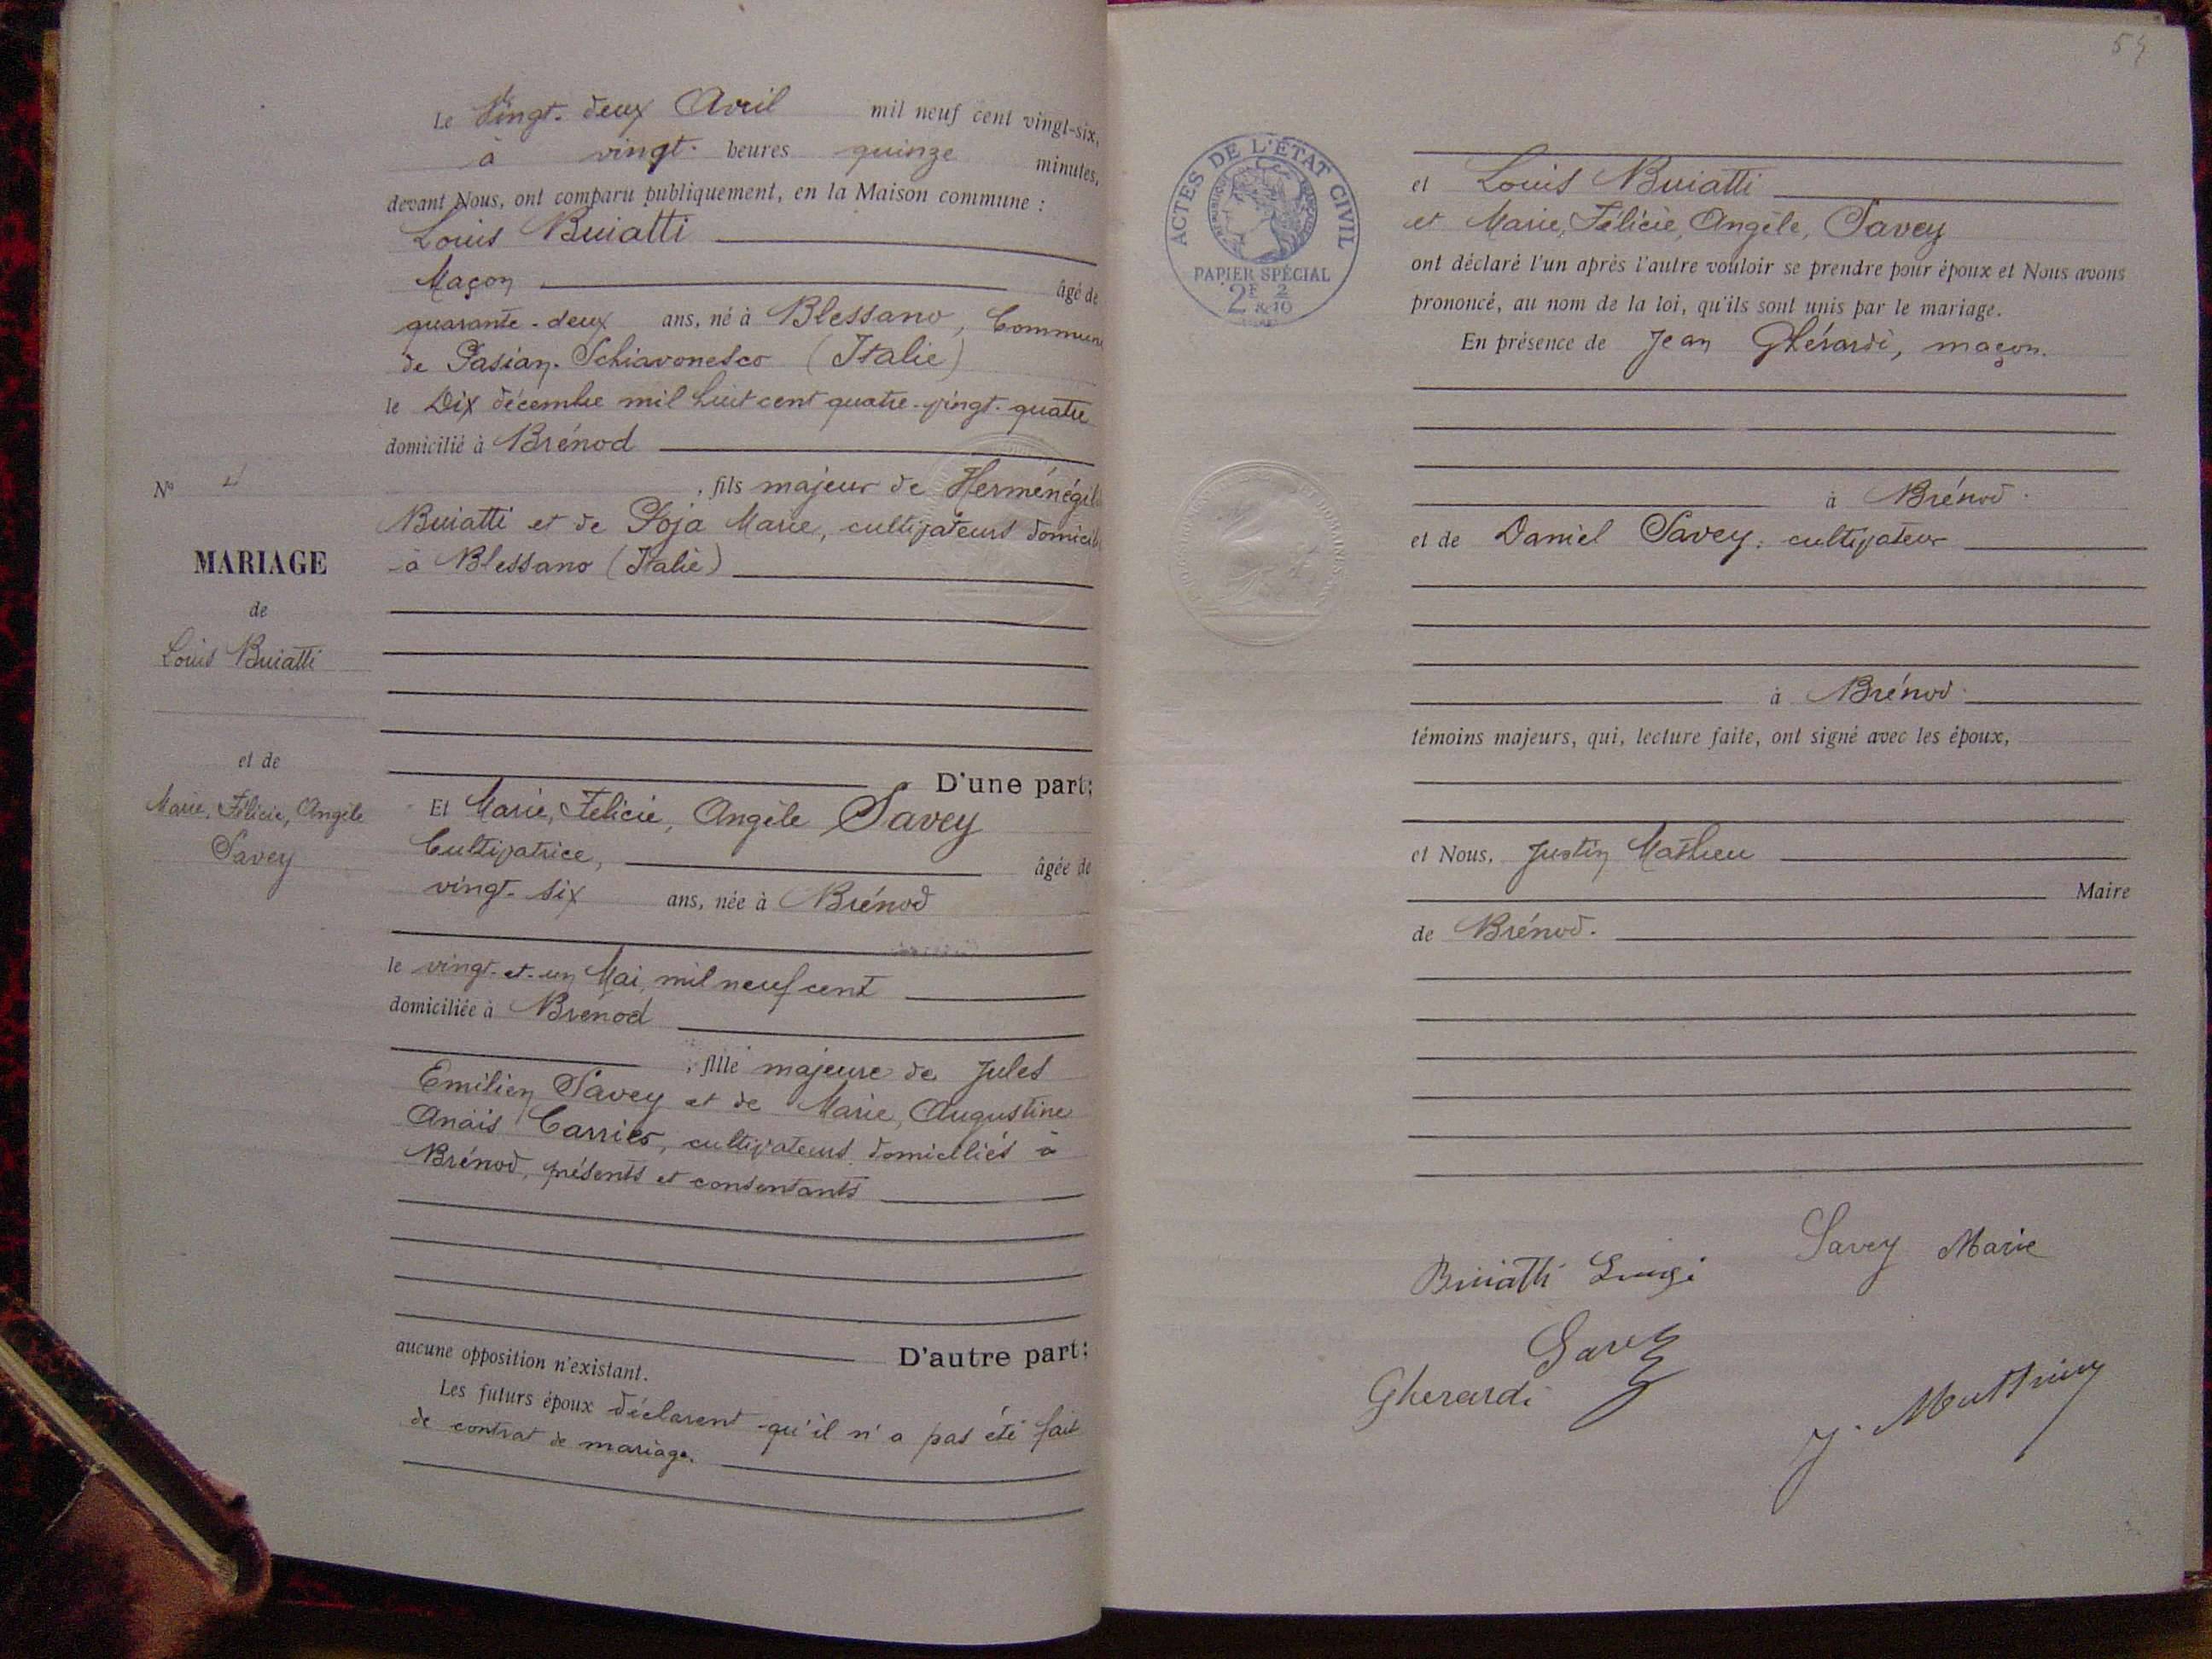 Le Vingt-deux Avril mil neuf cent vingt-six,
à vingt heures quinze minutes,
devant Nous, ont comparu publiquement, en la Maison commune :
Louis Buiatti
Maçon âgé de
quarante-deux ans, né à Blessano, Commune
de Pasian-Schiavonesco (Italie)
le Dix décembre mil huit cent quatre-vingt-quatre
domicilié à Brénod
, fils majeur de Herménégil
Buiatti et de Marie, cultivateurs domicili
à Blessano (Italie)
D'une part;
Et Marie, Félicie, Angèle Savey
Cultivatrice, âgée de
vingt-six ans, née à Brénod
le vingt-et-un Mai, mil neuf cent
domiciliée à Brénod
, fille majeure de Jules
Emilien Savey et de Marie, Augustine
Anaïs Carrier, cultivateurs domiciliés à
Brénod, présents et consentants
D'autre part;
aucune opposition n'existant.
Les futurs époux déclarent qu'il n'a pas été fait
de contrat de mariage.
No
MARIAGE
de
Louis Buiatti
et de
Marie, Félicie, Angèle
Savey
ACTES DE L'ÉTAT CIVIL
PAPIER SPÉCIAL
2F 2/10
et Louis Buiatti
et Marie, Félicie, Angèle, Savey
ont déclaré l'un après l'autre vouloir se prendre pour époux et Nous avons
prononcé, au nom de la loi, qu'ils sont unis par le mariage.
En présence de Jean Ghérardi, maçon.
à Brénod.
et de Daniel Savey, cultivateur
à Brénod.
témoins majeurs, qui, lecture faite, ont signé avec les époux,
et Nous, Justin Mathieu
Maire
de Brénod.
Savey Marie
Buiatti Luigi
Savey
Gherardi
J. Mathieu